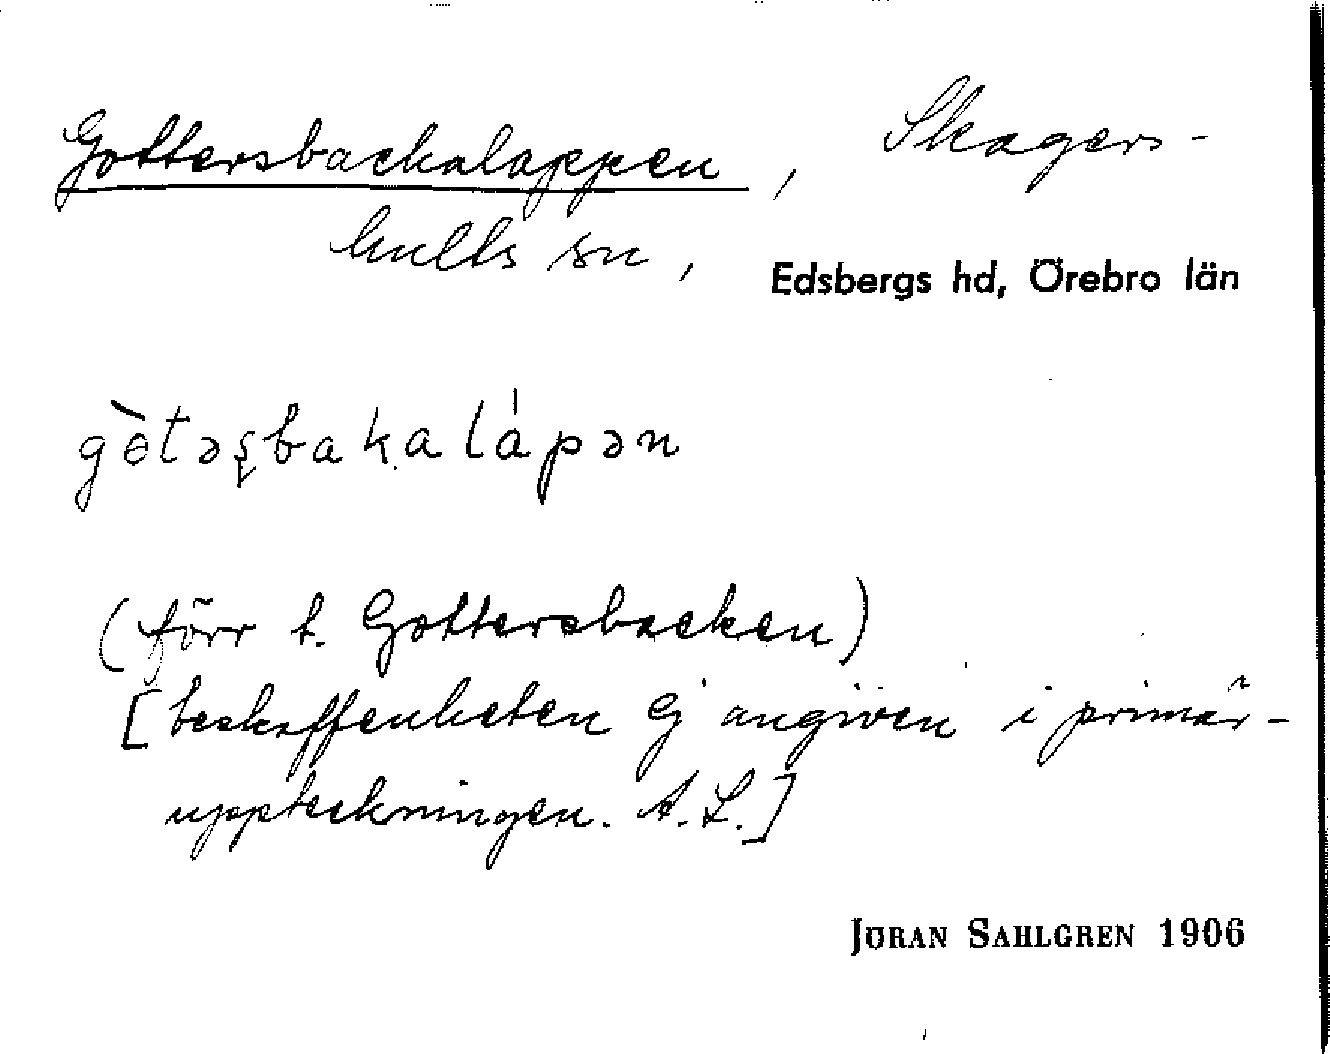 Gottersbackalappen, Skagers-
hults sn,
Edsbergs hd, Örebro län
gòtəʂbakalápən
(förr t. Gottersbacken)
[beskaffenheten ej angiven i primär-
uppteckningen. A.L.]
JÖRAN SAHLGREN 1906